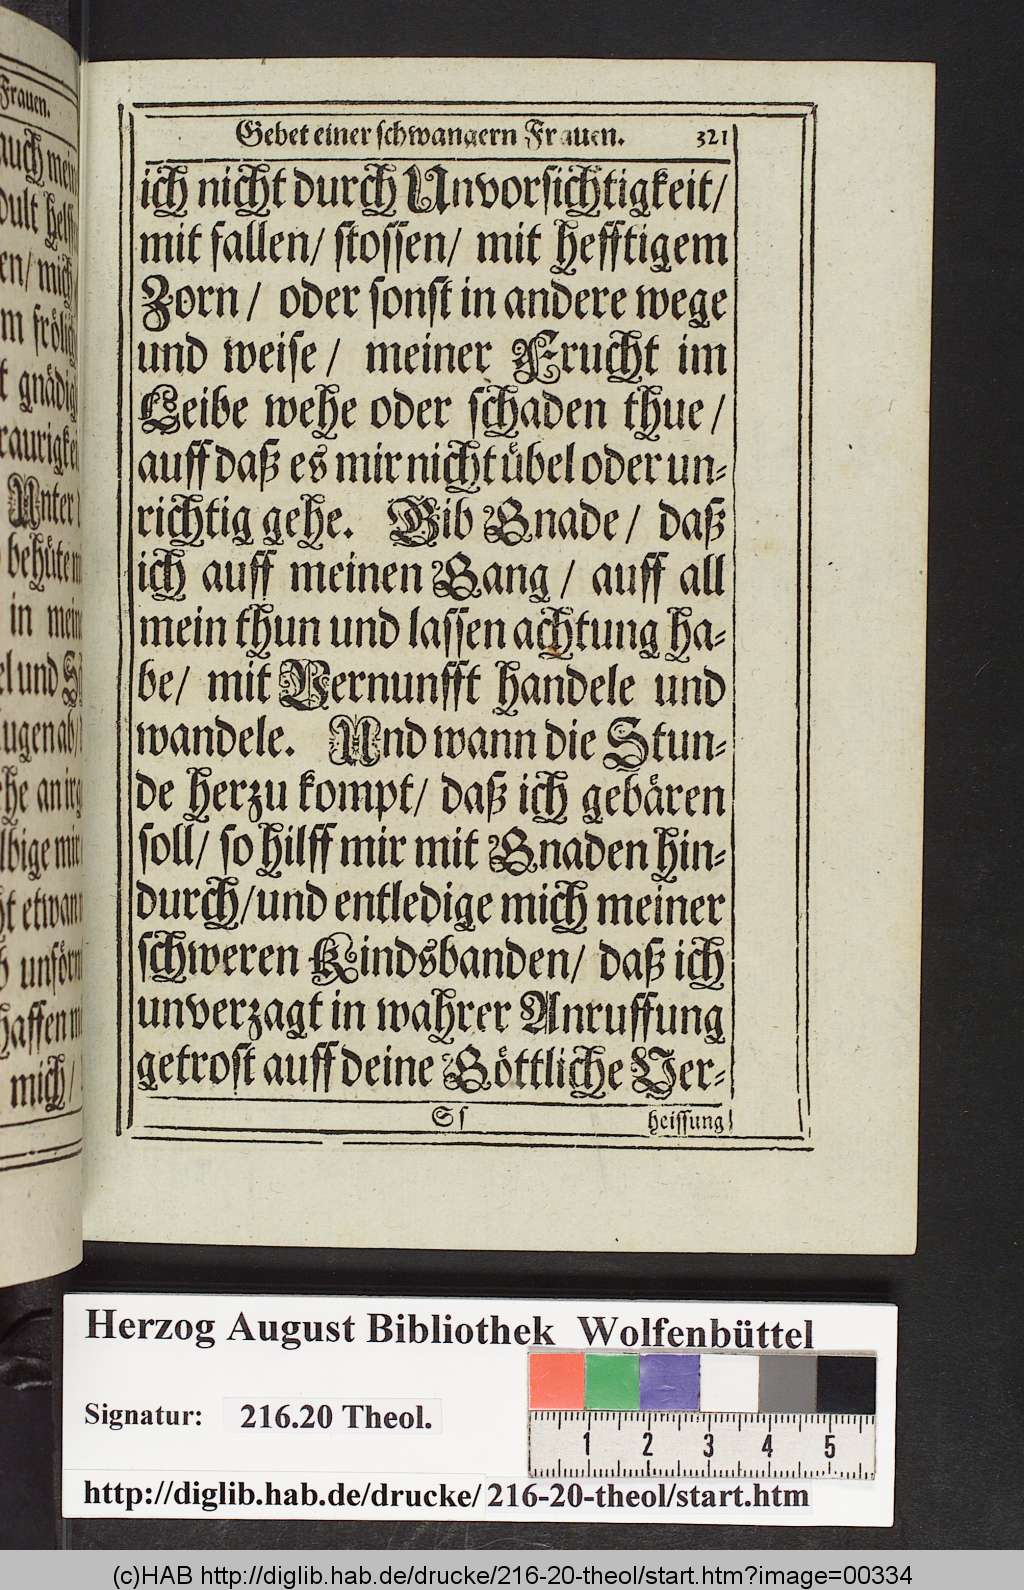 Frauen.
auch mein
dult helff
en/ mich/
m frölich
t gnädig
raurigkei
Unter
behüte m
in mein
el und S
ugen ab/
ehe an irg
lbige mir
ht etwann
unförm
haffen
mich/
Gebet einer schwangern Frauen. 321
ich nicht durch Unvorsichtigkeit/
mit fallen/ stossen/ mit hefftigem
Zorn/ oder sonst in andere wege
und weise/ meiner Frucht im
Leibe wehe oder schaden thue/
auff daß es mir nicht übel oder un-
richtig gehe. Gib Gnade/ daß
ich auff meinen Gang/ auff all
mein thun und lassen achtung ha-
be/ mit Vernunfft handele und
wandele. Und wann die Stun-
de herzu kompt/ daß ich gebären
soll/ so hilff mir mit Gnaden hin-
durch/ und entledige mich meiner
schweren Kindsbanden/ daß ich
unverzagt in wahrer Anruffung
getrost auff deine Göttliche Ver-
Ss heissung/
Herzog August Bibliothek Wolfenbüttel
Signatur: 216.20 Theol.
1 2 3 4 5
http://diglib.hab.de/drucke/216-20-theol/start.htm
(c)HAB http://diglib.hab.de/drucke/216-20-theol/start.htm?image=00334